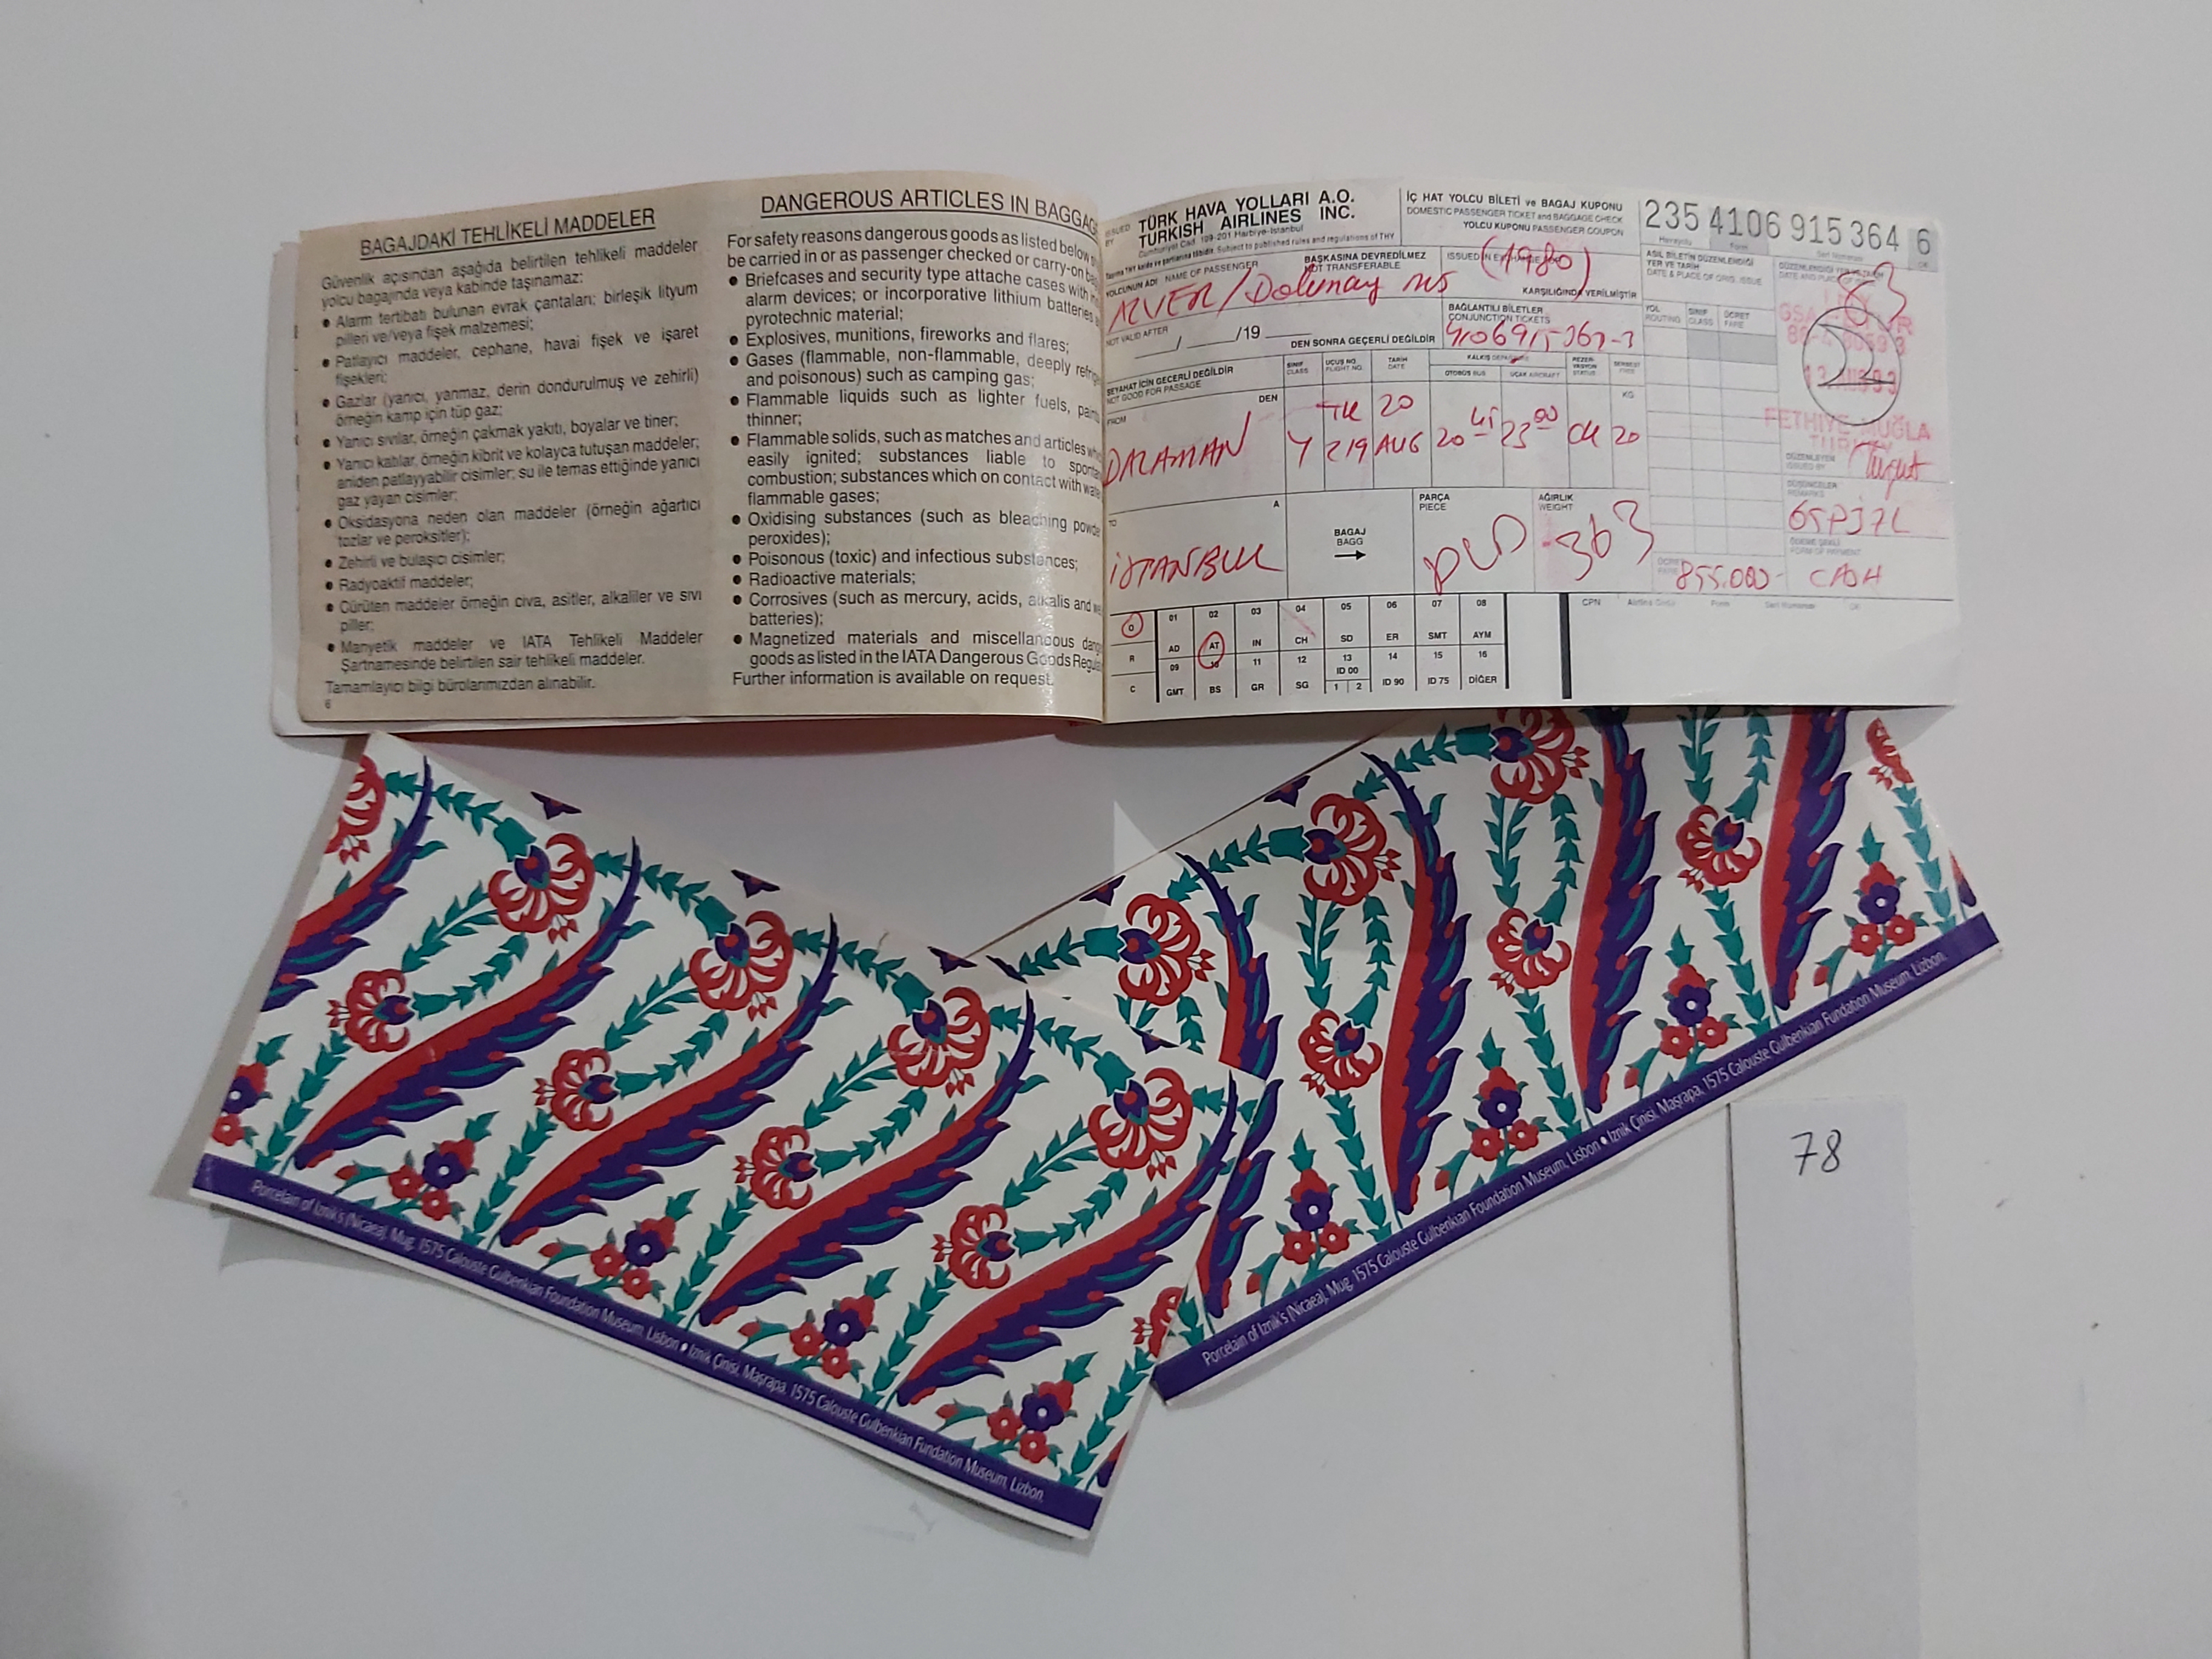 BAGAJDAKİ TEHLİKELİ MADDELER
Güvenlik açısından aşağıda belirtilen tehlikeli maddeler
yolcu bagajında veya kabinde taşınamaz:
● Alarm tertibatı bulunan evrak çantaları; birleşik lityum
pilleri ve/veya fişek malzemesi;
● Patlayıcı maddeler, cephane, havai fişek ve işaret
fişekleri;
● Gazlar (yanıcı, yanmaz, derin dondurulmuş ve zehirli)
örneğin kamp için tüp gaz;
● Yanıcı sıvılar, örneğin çakmak yakıtı, boyalar ve tiner;
● Yanıcı katılar, örneğin kibrit ve kolayca tutuşan maddeler;
aniden patlayyabilir cisimler; su ile temas ettiğinde yanıcı
gaz yayan cisimler;
● Oksidasyona neden olan maddeler (örneğin ağartıcı
tozlar ve peroksitler);
● Zehirli ve bulaşıcı cisimler;
● Radyoaktif maddeler;
● Çürüten maddeler örneğin civa, asitler, alkaliler ve sıvı
piller;
● Manyetik maddeler ve IATA Tehlikeli Maddeler
Şartnamesinde belirtilen sair tehlikeli maddeler.
Tamamlayıcı bilgi bürolarımızdan alınabilir.
6
DANGEROUS ARTICLES IN BAGGAG
For safety reasons dangerous goods as listed below
be carried in or as passenger checked or carry-on
● Briefcases and security type attache cases with
alarm devices; or incorporative lithium batteries
pyrotechnic material;
● Explosives, munitions, fireworks and flares;
● Gases (flammable, non-flammable, deeply refrig
and poisonous) such as camping gas;
● Flammable liquids such as lighter fuels,
thinner;
● Flammable solids, such as matches and articles
easily ignited; substances liable to
combustion; substances which on contact with
flammable gases;
● Oxidising substances (such as bleaching
peroxides);
● Poisonous (toxic) and infectious substances;
● Radioactive materials;
● Corrosives (such as mercury, acids, alkalis and
batteries);
● Magnetized materials and miscellanous
goods as listed in the IATA Dangerous Goods
Further information is available on request.
ISSUED BY
TÜRK HAVA YOLLARI A.O.
TURKISH AIRLINES INC.
Cumhuriyet Cad. 199-201 Harbiye-İstanbul
Subject to published rules and regulations of THY
İÇ HAT YOLCU BİLETİ ve BAGAJ KUPONU
DOMESTIC PASSENGER TICKET and BAGGAGE CHECK
YOLCU KUPONU PASSENGER COUPON
235 4106 915 364 6
YOLCUNUN ADI NAME OF PASSENGER
BAŞKASINA DEVREDİLMEZ
NOT TRANSFERABLE
ISSUED IN
(1980)
KARŞILIĞINDA VERİLMİŞTİR
Dolunay MS
NOT VALID AFTER
/19
DEN SONRA GEÇERLİ DEĞİLDİR
BAĞLANTILI BİLETLER
CONJUNCTION TICKETS
4106915-363-3
ASIL BİLETİN DÜZENLENDİĞİ
YER VE TARİH
DATE & PLACE OF ORIG. ISSUE
63
YOL
ROUTING
SINIF
CLASS
ÜCRET
FARE
SEYAHAT İÇİN GEÇERLİ DEĞİLDİR
NOT GOOD FOR PASSAGE
SINIF
CLASS
UÇUŞ NO.
FLIGHT NO.
TARİH
DATE
OTOBÜS BUS
UÇAK AIRCRAFT
REZERVASYON
STATUS
KG
FROM
DEN
DALAMAN
Y
TK 219
20 AUG
20 45
23 00
OK
20
FETHİYE MUĞLA
TURKEY
DÜZENLEYEN
ISSUED BY
Turgut
DÜŞÜNCELER
REMARKS
TO
A
İSTANBUL
BAGAJ
BAGG
PARÇA
PIECE
AĞIRLIK
WEIGHT
363
FORM OF PAYMENT
855.000-
CASH
O 01 AD 02 AT 03 IN 04 CH 05 SD 06 ER 07 SMT 08 AYM
R
C 09 GMT 10 BS 11 GR 12 SG 13 ID 00 1 2 14 ID 90 15 ID 75 16 DİĞER
CPN
Porcelain of Iznik's (Nicaea), Mug, 1575 Calouste Gulbenkian Foundation Museum, Lisbon ● İznik Çinisi, Maşrapa, 1575 Calouste Gulbenkian Fundation Museum, Lizbon.
Porcelain of Iznik's (Nicaea), Mug, 1575 Calouste Gulbenkian Foundation Museum, Lisbon ● İznik Çinisi, Maşrapa, 1575 Calouste Gulbenkian Fundation Museum, Lizbon.
78